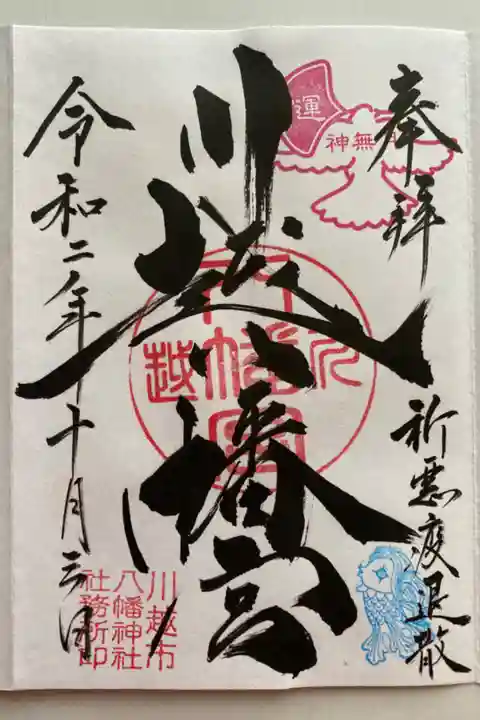 奉拝
祈悪疫退散
川越八幡宮
令和二年十月三日
運
神無月
川越市
八幡神社
社務所印